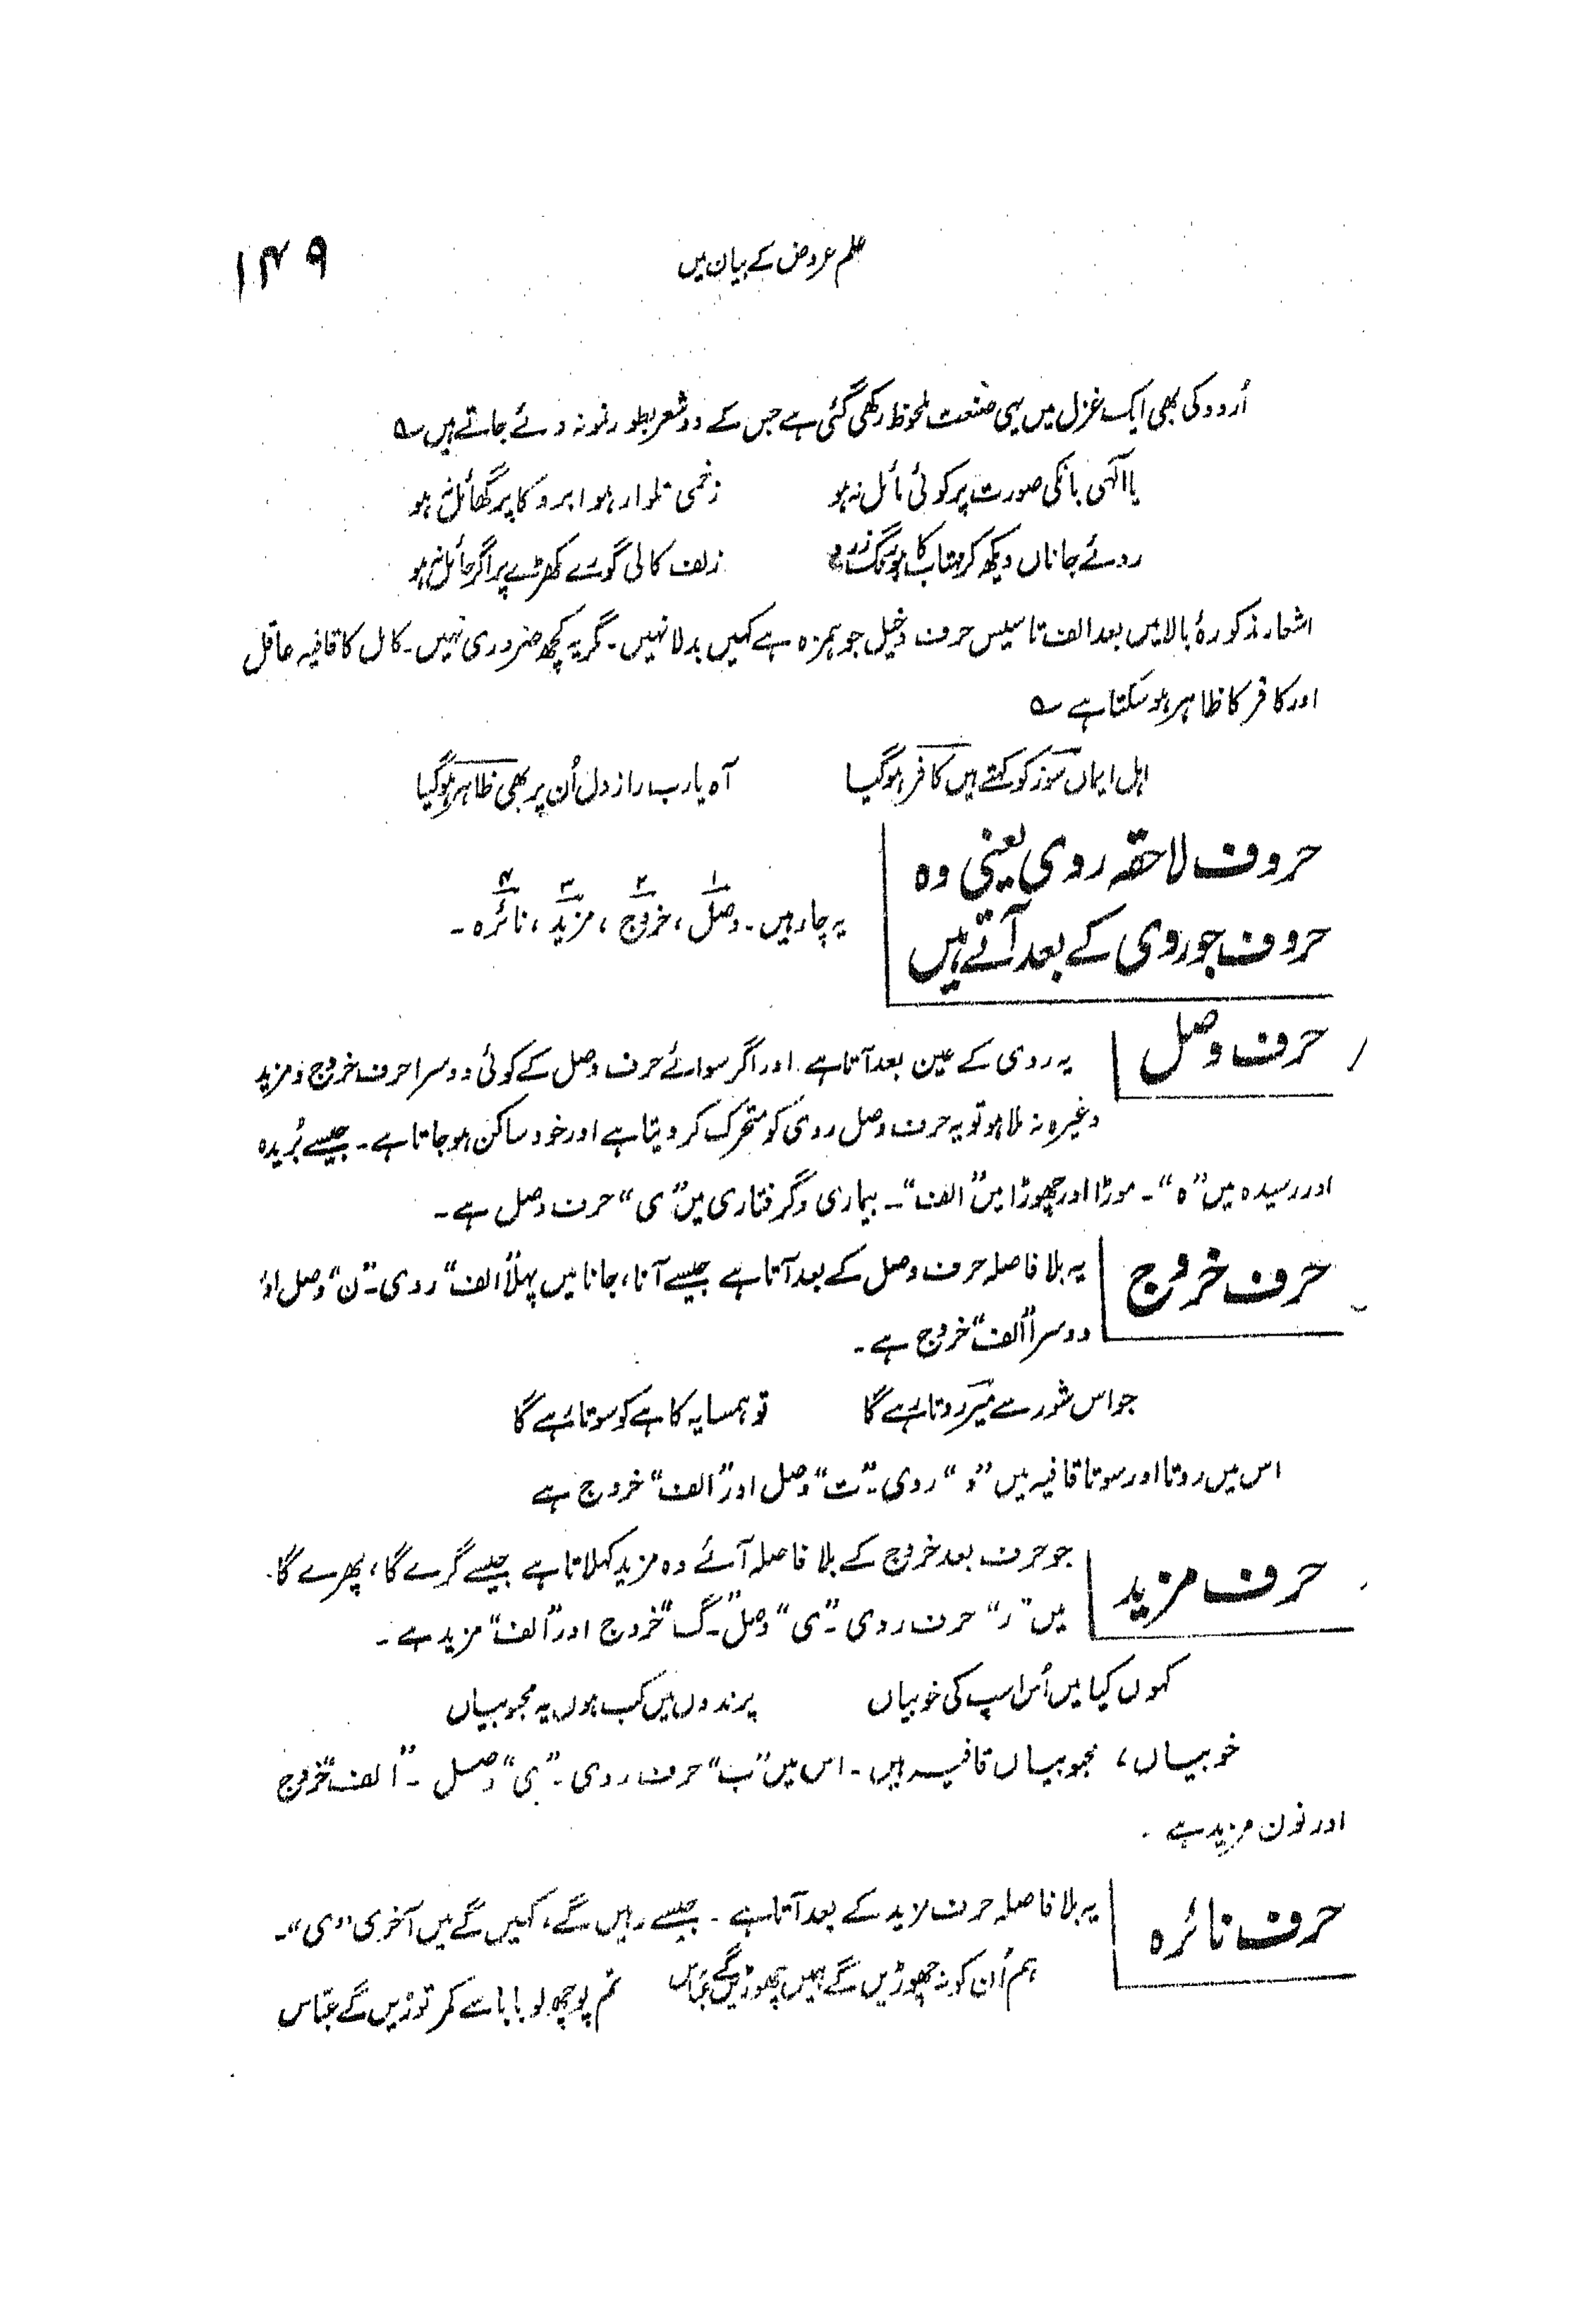 علم عروض کے بیان میں
۱۴۹
اُردو کی بھی ایک غزل میں یہی صنعت ملحوظ رکھی گئی ہے جس کے دو شعر بطور نمونہ دئے جاتے ہیں ؎
یا الٰہی بانکی صورت پر کوئی مائل نہ ہو زخمی تلوار ہو ابرو کا پر گھائل نہ ہو
روئے جاناں دیکھ کر مہتاب کا ہو رنگ زرد زلف کالی گورے مکھڑے پر اگر حائل نہ ہو
اشعار مذکورۂ بالا میں بعد الف تاسیس حرف دخیل جو ہمزہ ہے کہیں بدلا نہیں۔ مگر یہ کچھ ضروری نہیں۔ کامل کا قافیہ عاقل
اور کافر کا ظاہر ہو سکتا ہے ؎
اہل ایماں سوز کو کہتے ہیں کافر ہو گیا آہ یا رب راز دل اُن پر بھی ظاہر ہو گیا
حروف لاحقہ روی یعنی وہ
حروف جو روی کے بعد آتے ہیں
یہ چار ہیں۔ وصل۱، خروج۲، مزید۳، نائرہ۴۔
حرف وصل
یہ روی کے عین بعد آتا ہے۔ اور اگر سوائے حرف وصل کے کوئی دوسرا حرف خروج و مزید
وغیرہ نہ ملا ہو تو یہ حرف وصل روی کو متحرک کر دیتا ہے اور خود ساکن ہو جاتا ہے۔ جیسے بُریدہ
اور رسیدہ میں ”ہ“۔ موڑا اور چھوڑا میں ”الف“۔ بیماری و گرفتاری میں ”ی“ حرف وصل ہے۔
حرف خروج
یہ بلا فاصلہ حرف وصل کے بعد آتا ہے جیسے آنا، جانا میں پہلا ”الف“ روی۔ ”ن“ وصل اور
دوسرا ”الف“ خروج ہے۔
جو اس شور سے میر روتا رہے گا تو ہمسایہ کاہے کو سوتا رہے گا
اس میں روتا اور سوتا قافیہ میں ”و“ روی۔ ”ت“ وصل اور ”الف“ خروج ہے
حرف مزید
جو حرف بعد خروج کے بلا فاصلہ آئے وہ مزید کہلاتا ہے جیسے گرے گا، پھرے گا۔
میں ”ر“ حرف روی۔ ”ی“ وصل۔ ”گ“ خروج اور ”الف“ مزید ہے۔
کہوں کیا میں اُس اسپ کی خوبیاں پرندوں میں کب ہوں یہ محبوبیاں
خوبیاں، محبوبیاں قافیہ ہیں۔ اس میں ”ب“ حرف روی۔ ”ی“ وصل۔ ”الف“ خروج
اور نون مزید ہے۔
حرف نائرہ
یہ بلا فاصلہ حرف مزید کے بعد آتا ہے۔ جیسے رہیں گے، کہیں گے میں آخری ”ی“۔
ہم اُن کو نہ چھوڑیں گے ہمیں چھوڑیں گے عباس تم پوچھ لو بابا سے کمر توڑیں گے عبّاس